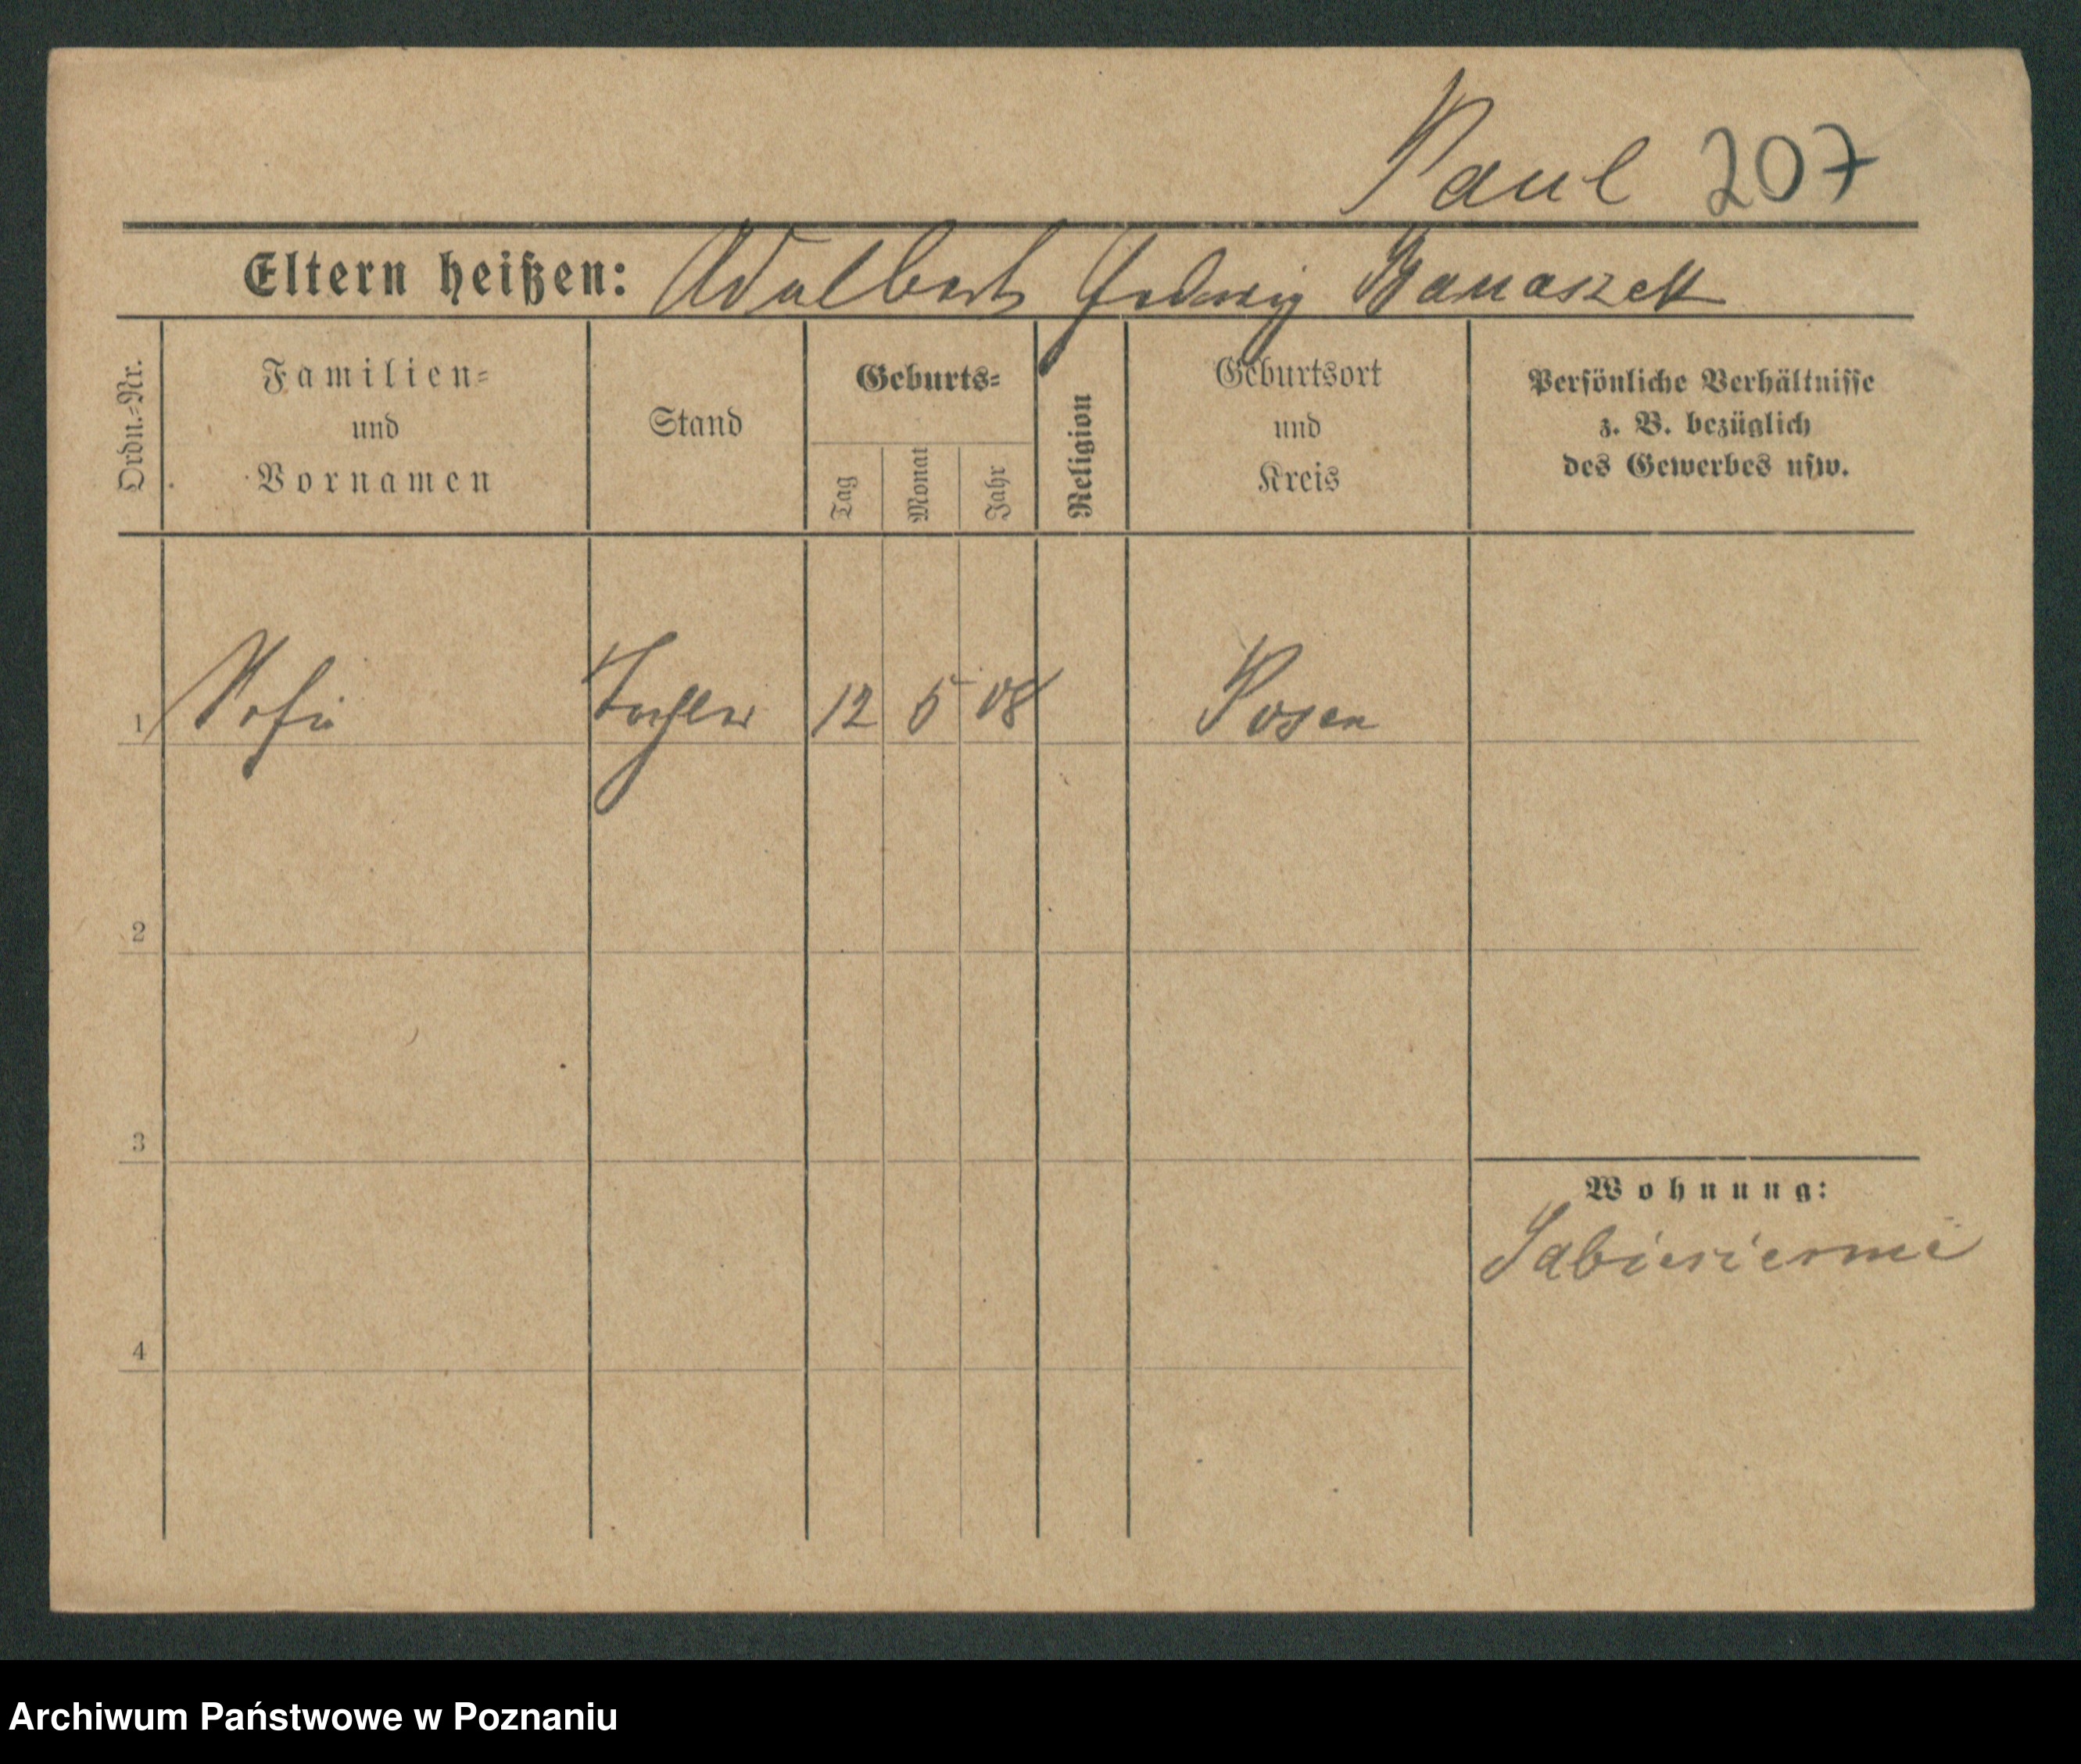 Paul 207
Eltern heißen: Adalbert Hedwig Banaszak
Ordn.=Nr.
Familien=
und
Vornamen
Stand
Geburts=
Tag
Monat
Jahr
Religion
Geburtsort
und
Kreis
Persönliche Verhältnisse
z. B. bezüglich
des Gewerbes usw.
1 Tochter 12 5 08 Posen
2
3
Wohnung:
4
Archiwum Państwowe w Poznaniu